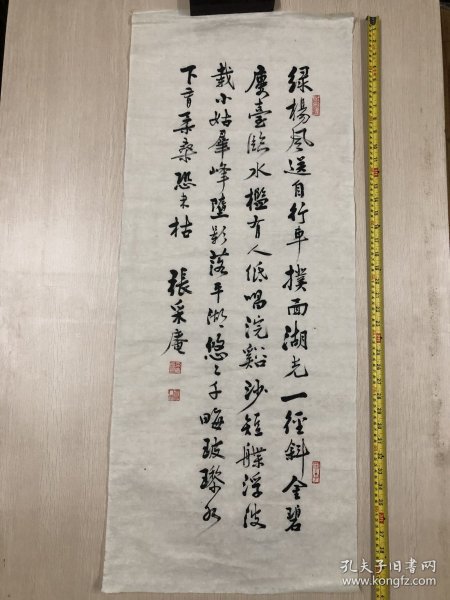 綠楊風送自行車撲面湖光一徑斜金碧
廣臺臨水檻有人低唱浣谿沙短艓浮波
載小姑羣峰墮影落平湖悠々千畮玻瓈水
下柔桑恐未枯
張采庵
孔夫子旧书网
www.kongfz.com